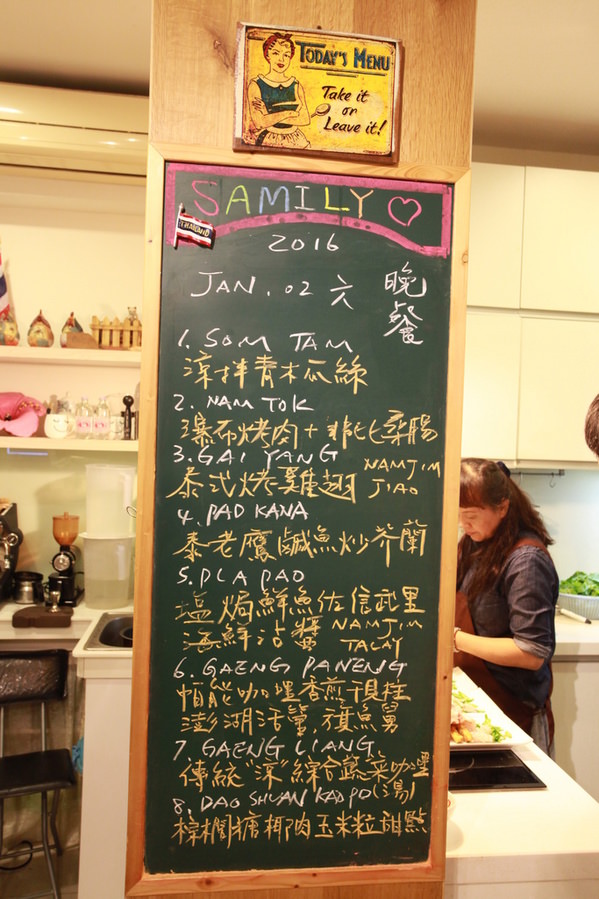 TODAY'S MENU
Take it
or
Leave it!
SAMILY
THAILAND
2016
JAN. 02 六 晚餐
1. SOM TAM
涼拌青木瓜絲
2. NAM TOK
瀑布烤肉+非比桑腸
3. GAI YANG NAMJIM
泰式烤雞翅 JIAO
4. PAD KANA
泰老鷹鹹魚炒芥蘭
5. PLA PAO
塩焗鮮魚佐信武里
海鮮沾醬 NAMJIM
TALAY
6. GAENG PANENG
帕能咖哩香煎干貝柱
澎湖活管.旗魚舅
7 GAENG LIANG
傳統"涼"綜合蔬菜咖哩
8. DAO SHUAN KAO PO (湯)
棕櫚糖椰肉玉米粒甜點